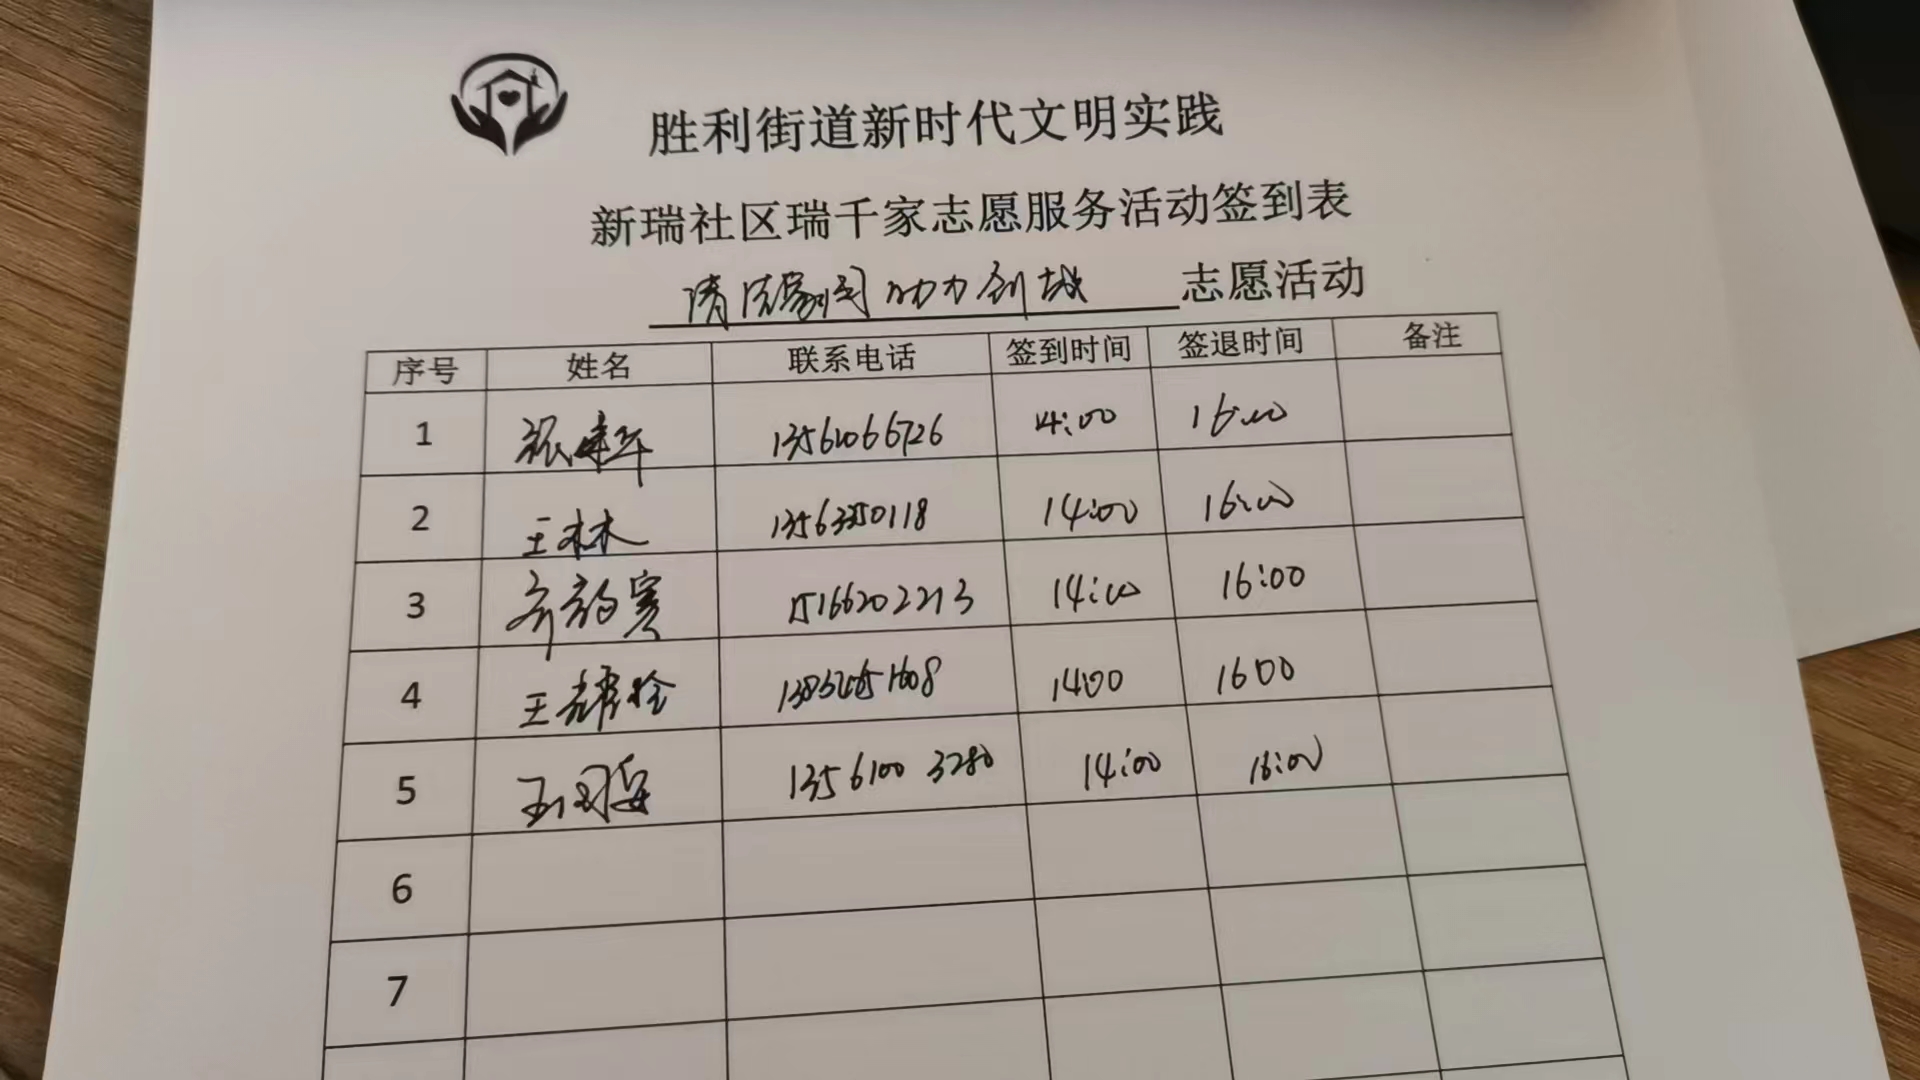 胜利街道新时代文明实践
新瑞社区瑞千家志愿服务活动签到表
清洁家园 助力创城 志愿活动
序号 姓名 联系电话 签到时间 签退时间 备注
1 张建华 13561066726 14:00 16:00
2 王林 13563350118 14:00 16:00
3 15166202213 14:00 16:00
4 王耀铨 1400 1600
5 13561003280 14:00 16:00
6
7